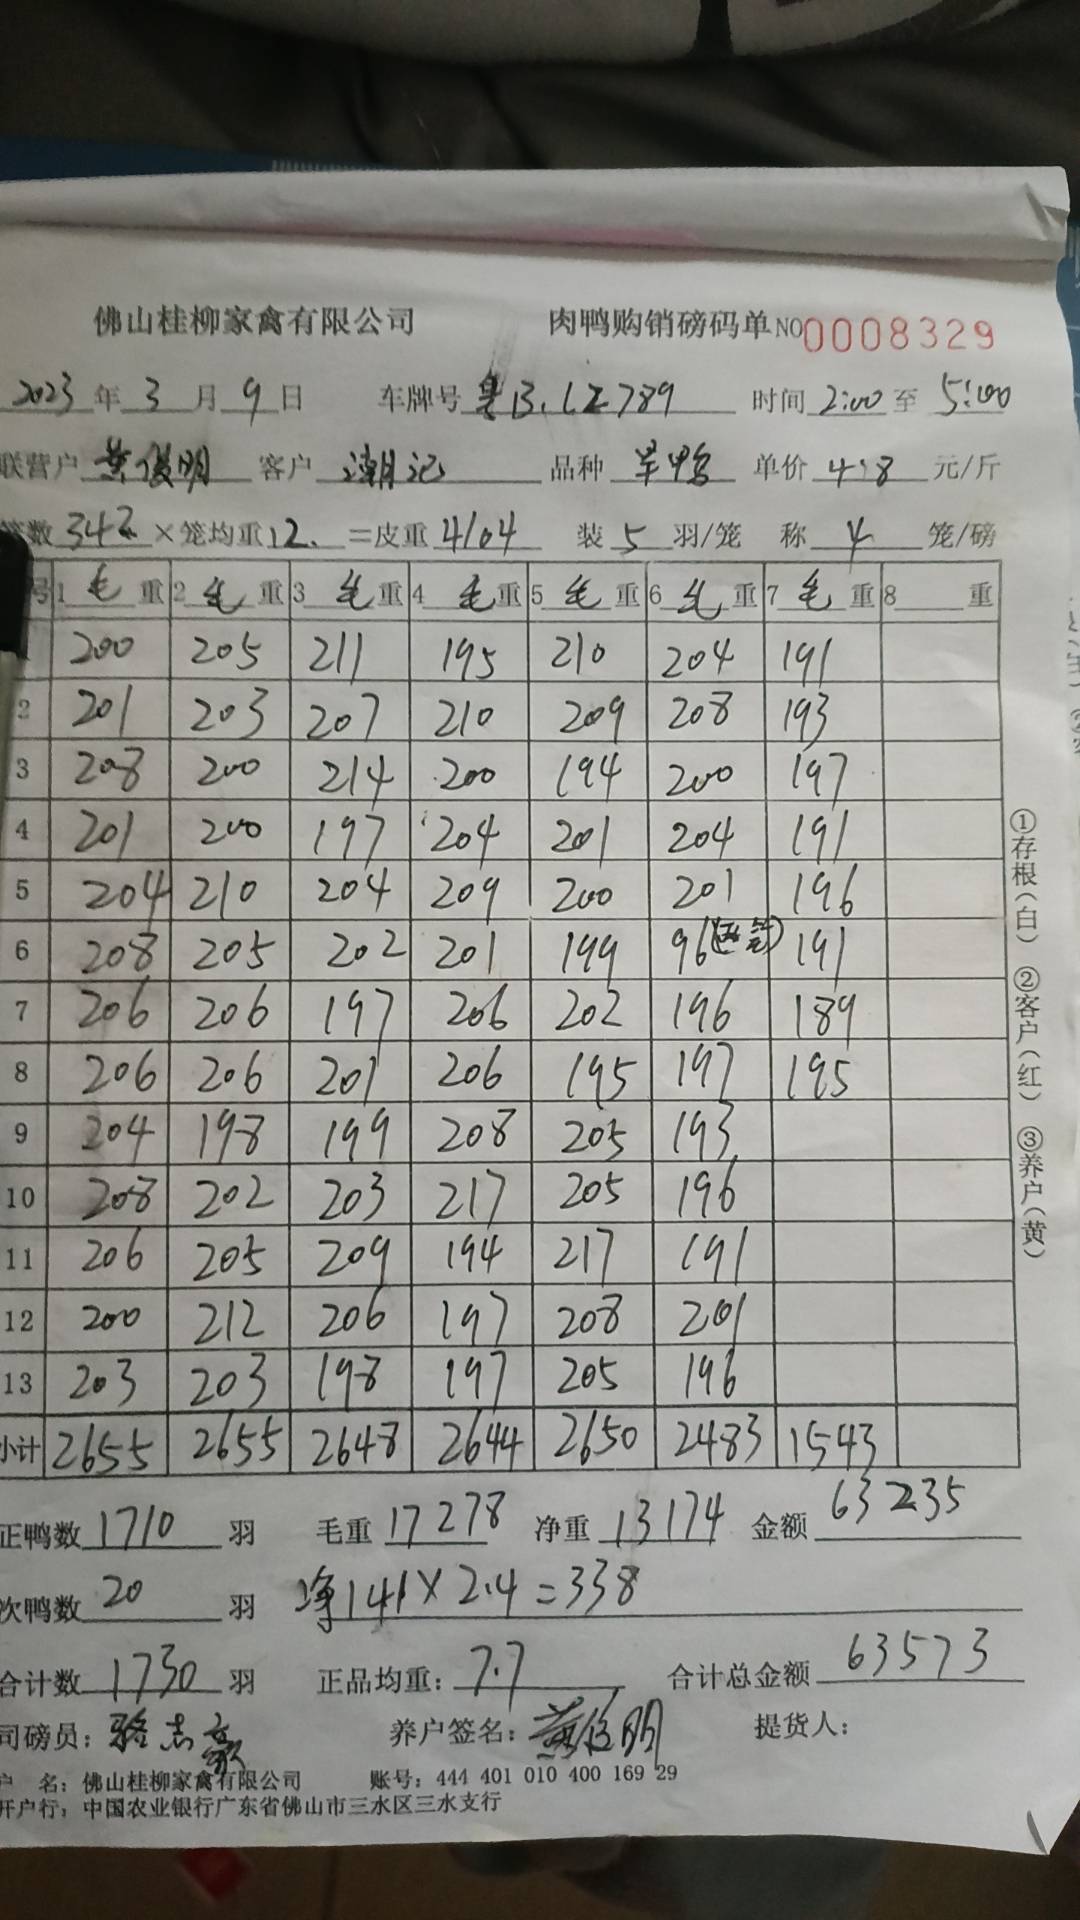 佛山桂柳家禽有限公司 肉鸭购销磅码单 NO 0008329
2023 年 3 月 9 日 车牌号 粤B.LZ789 时间 2:00 至 5:00
联营户 黄俊明 客户 潮记 品种 旱鸭 单价 4.8 元/斤
笼数 342 ×笼均重 12. =皮重 4104 装 5 羽/笼 称 4 笼/磅
号 1 毛 重 2 毛 重 3 毛 重 4 毛 重 5 毛 重 6 毛 重 7 毛 重 8 重
200 205 211 195 210 204 191
2 201 203 207 210 209 208 193
3 208 200 214 200 194 200 197
4 201 200 197 204 201 204 191
5 204 210 204 209 200 201 196
6 208 205 202 201 199 96 191
7 206 206 197 206 202 196 189
8 206 206 201 206 195 197 195
9 204 198 199 208 205 193
10 208 202 203 217 205 196
11 206 205 209 194 217 191
12 200 212 206 197 208 201
13 203 203 198 197 205 196
小计 2655 2655 2648 2644 2650 2483 1543
正鸭数 1710 羽 毛重 17278 净重 13174 金额 63235
次鸭数 20 羽 净141×2.4=338
合计数 1730 羽 正品均重: 7.7 合计总金额 63573
司磅员: 骆志豪 养户签名: 黄俊明 提货人:
户 名: 佛山桂柳家禽有限公司 账号: 444 401 010 400 169 29
开户行: 中国农业银行广东省佛山市三水区三水支行
①存根(白) ②客户(红) ③养户(黄)